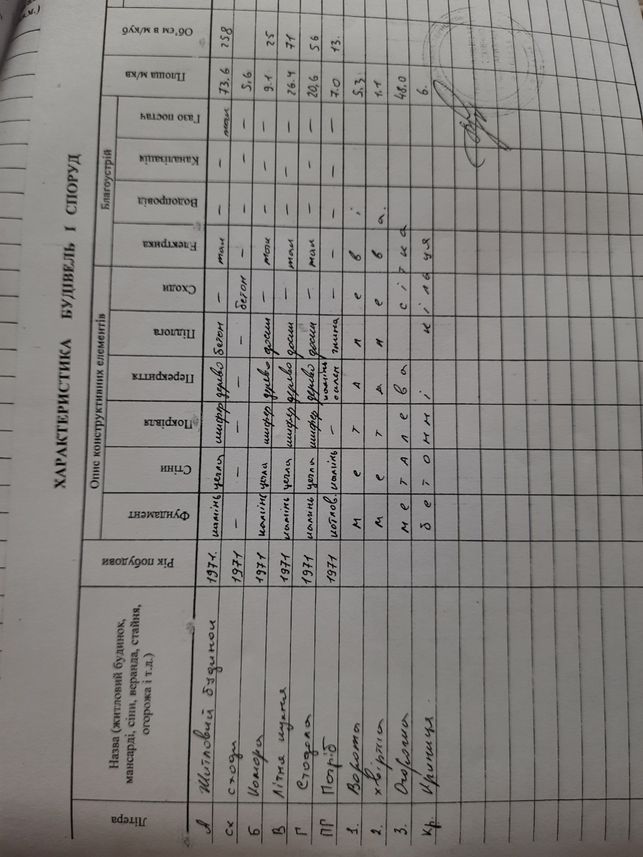 ХАРАКТЕРИСТИКА БУДІВЕЛЬ І СПОРУД
Літера
Назва (житловий будинок, мансарді, сіни, веранда, стайня, огорожа і т.д.)
Рік побудови
Опис конструктивних елементів
Фундамент
Стіни
Покрівля
Перекриття
Підлога
Сходи
Благоустрій
Електрика
Водопровід
Каналізація
Газо постач
Площа м/кв
Об'єм в м/куб
А Житловий будинок 1971 камінь цегла шифер дерево бетон – маи – – маи 73,6 258
Ск сходи 1971 – – – – – бетон – – – – 5,6
Б Комора 1971 камінь цегла шифер дерево дошки – маи – – – 9.1 25
В Літня кухня 1971 камінь цегла шифер дерево дошки – маи – – – 26.4 71
Г Стодола 1971 камінь цегла шифер дерево дошки – маи – – – 20,6 56
ПГ Погріб 1971 котлов. камінь – камінь глина – – – – – 7.0 13.
1. Ворота металеві 5,3
2. хвіртка металева 1,1
3. Огорожа металева сітка 48.0
Кр. Криниця бетонні кільця 6.